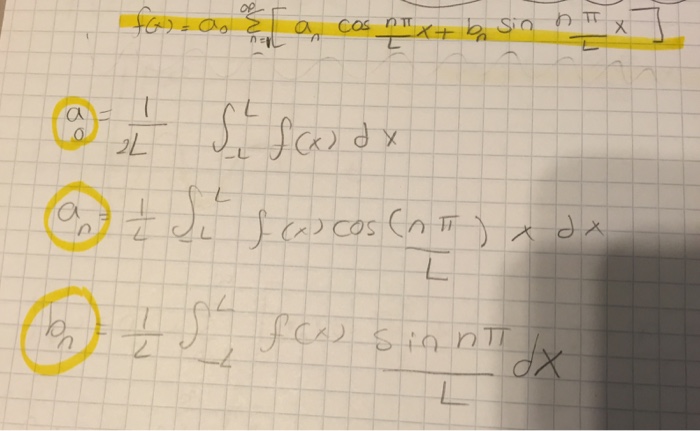 f(x) = a₀ ∞∑n=1 [ aₙ cos nπ/L x + bₙ sin nπ/L x ]
a₀ = 1/2L ∫_-L^L f(x) dx
aₙ = 1/L ∫_-L^L f(x) cos(nπ/L) x dx
bₙ = 1/L ∫_-L^L f(x) sin nπ/L dx